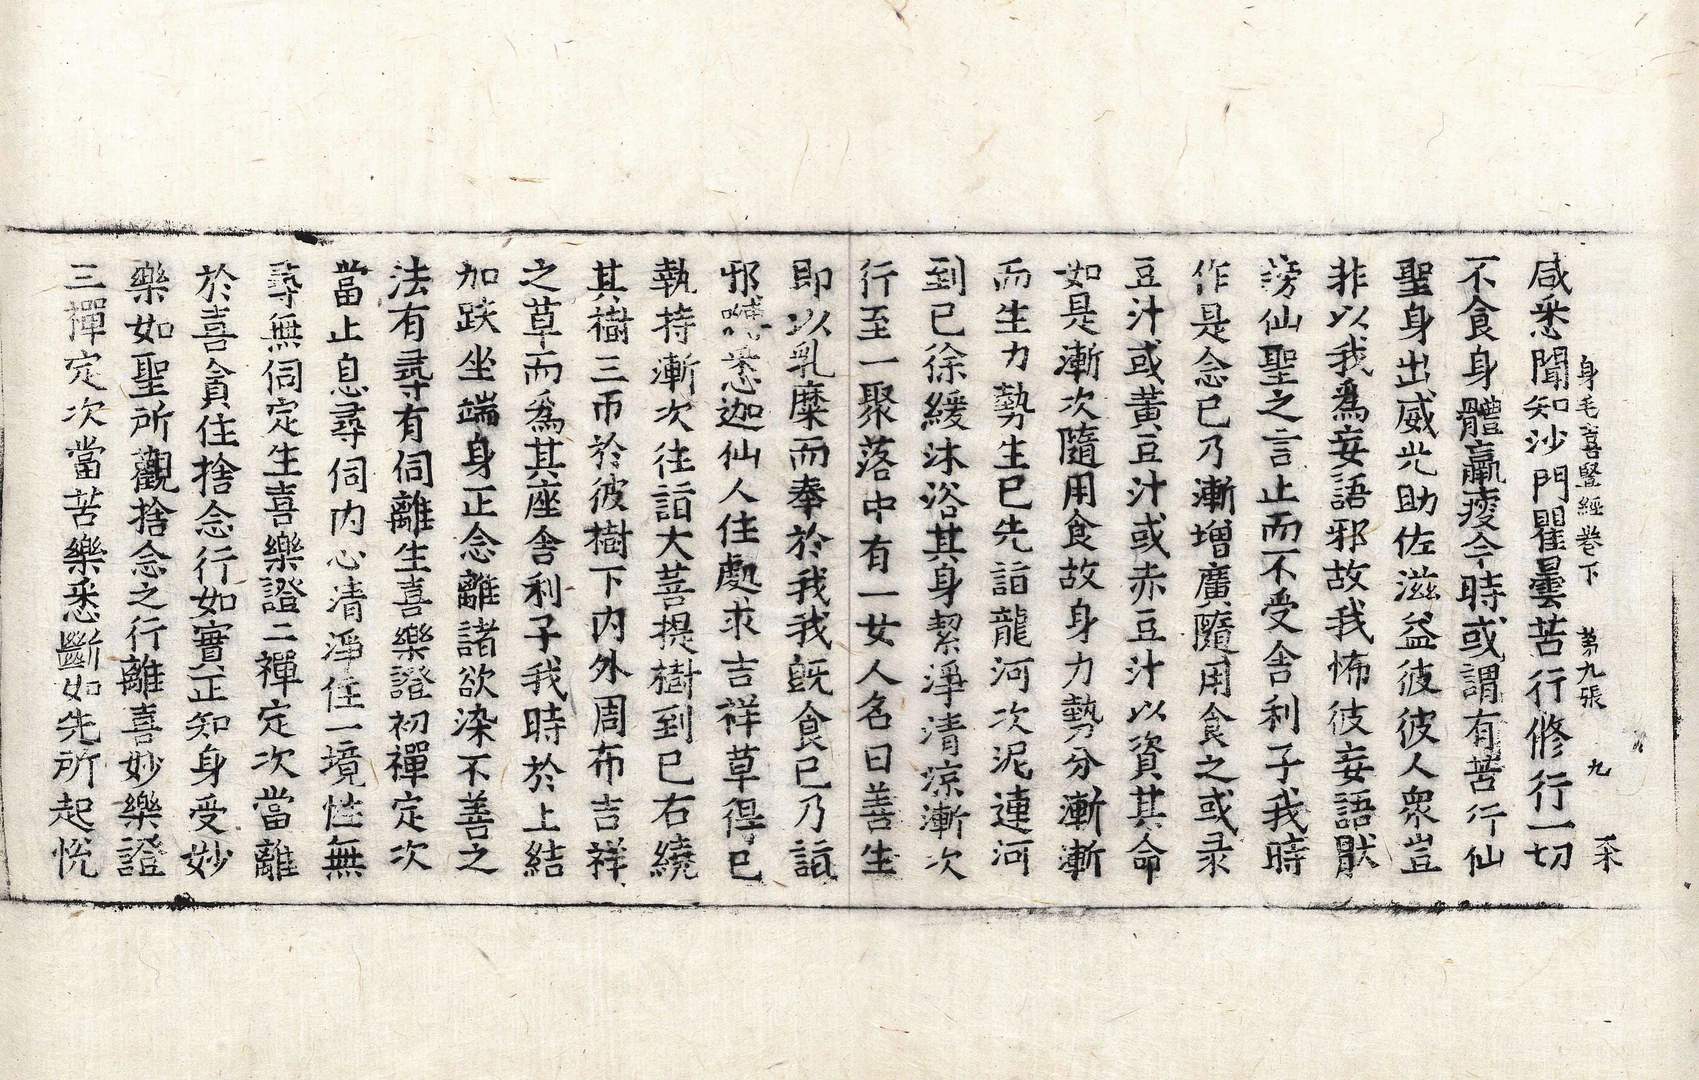 身毛喜豎經卷下 第九張 九
咸悉聞知沙門瞿曇苦行修行一切
不食身體羸瘦今時或謂有苦行仙
聖身出威光助佐滋益彼彼人衆豈
非以我爲妄語邪故我怖彼妄語猒
謗仙聖之言止而不受舍利子我時
作是念已乃漸增廣隨用食之或录
豆汁或黃豆汁或赤豆汁以資其命
如是漸次隨用食故身力勢分漸漸
而生力勢生已先詣龍河次泥連河
到已徐緩沐浴其身絜淨清涼漸次
行至一聚落中有一女人名曰善生
即以乳糜而奉於我我旣食已乃詣
邪嚩悉迦仙人住處求吉祥草得已
執持漸次往詣大菩提樹到已右繞
其樹三帀於彼樹下內外周布吉祥
之草而爲其座舍利子我時於上結
加趺坐端身正念離諸欲染不善之
法有尋有伺離生喜樂證初禪定次
當止息尋伺內心清淨住一境性無
尋無伺定生喜樂證二禪定次當離
於喜貪住捨念行如實正知身受妙
樂如聖所觀捨念之行離喜妙樂證
三禪定次當苦樂悉斷如先所起悅